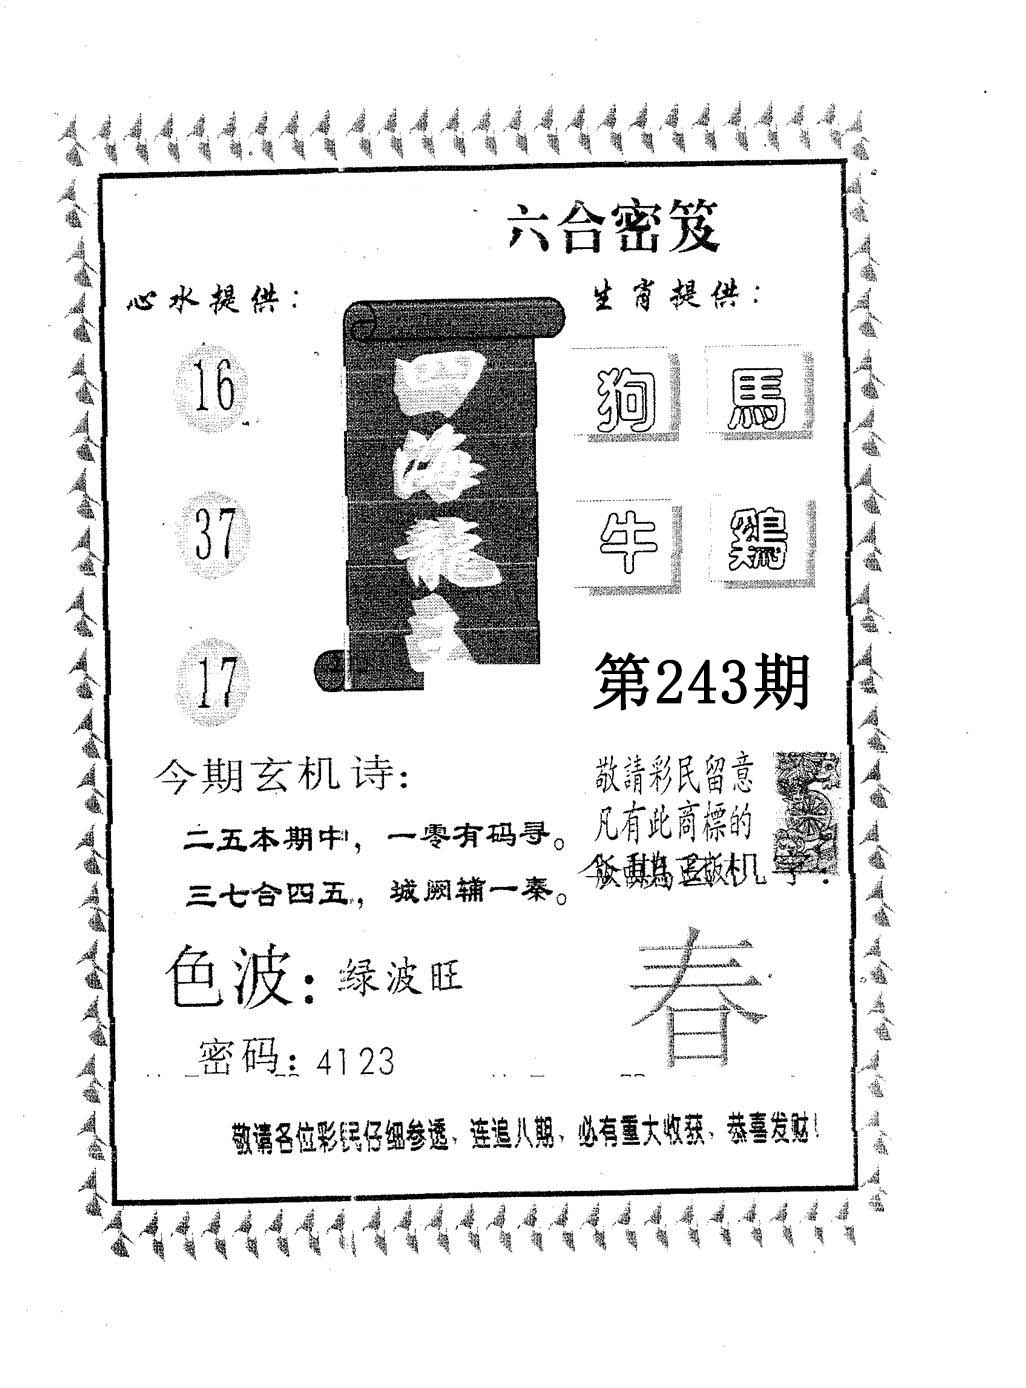 六合密笈
心水提供：
生肖提供：
16
37
17
四海龍
狗 馬
牛 鷄
第243期
今期玄机诗：
二五本期中，一零有码寻。
三七合四五，城阙辅一秦。
敬請彩民留意
凡有此商標的
色波：绿波旺
春
密码：4123
敬请各位彩民仔细参透、连追八期、必有重大收获、恭喜发财！